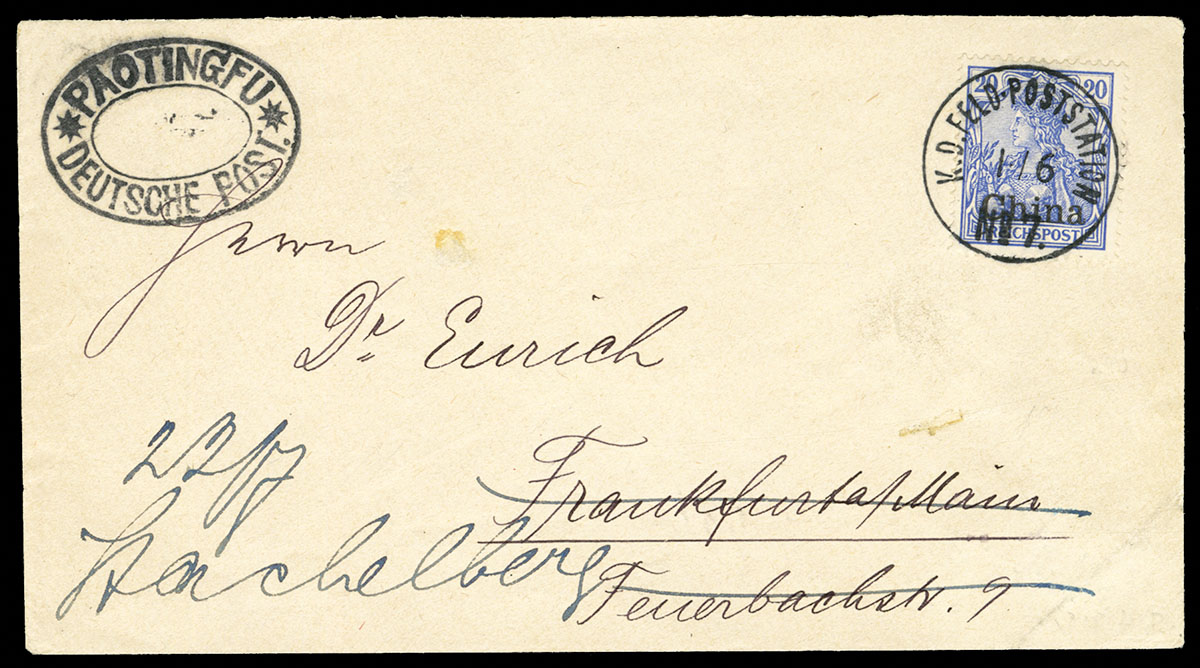 PAOTINGFU
DEUTSCHE POST.
20 20
K.D. FELD-POSTSTATION
1/6
China
REICHSPOST
No 7.
Herrn
Dr. Eurich
Frankfurt a/Main
Feuerbachstr. 9
Stachelberg